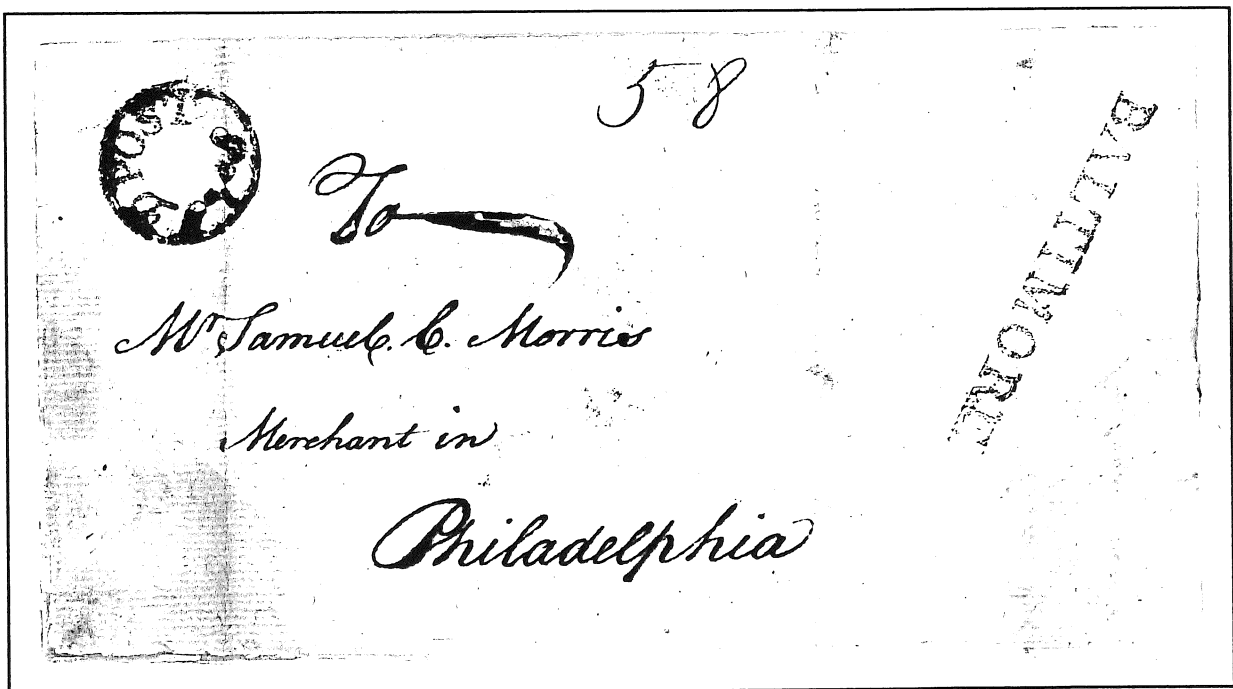 5 8
POST
To
Mr Samuel. C. Morris
Merchant in
Philadelphia
BALTIMORE